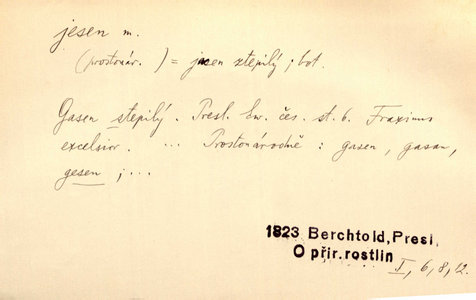 jesen m.
(prostonár.) = jasen ztepilý; bot.
Gasen stepilý. Presl. kw. čes. st. 6. Fraxinus
excelsior. ... Prostonárodně: gasen, gasan,
gesen; ...
1823 Berchtold, Presl,
O přir. rostlin
I, 6, 8, 12.